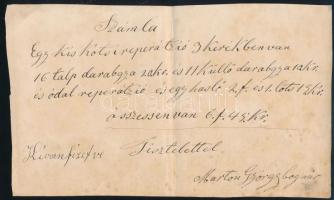 Számla
Egy kis kótsi reperátzió 3 kerékben van
16 talp darabgya 20kr. és 11 küllő darabgya 12kr
és ódal reperátzió és egy hasló 2.f. és 1. lőts 15kr.
öszszessen van 6.f. 45kr.
Ki van fizetve
Tisztelettel.
Marton György bognár